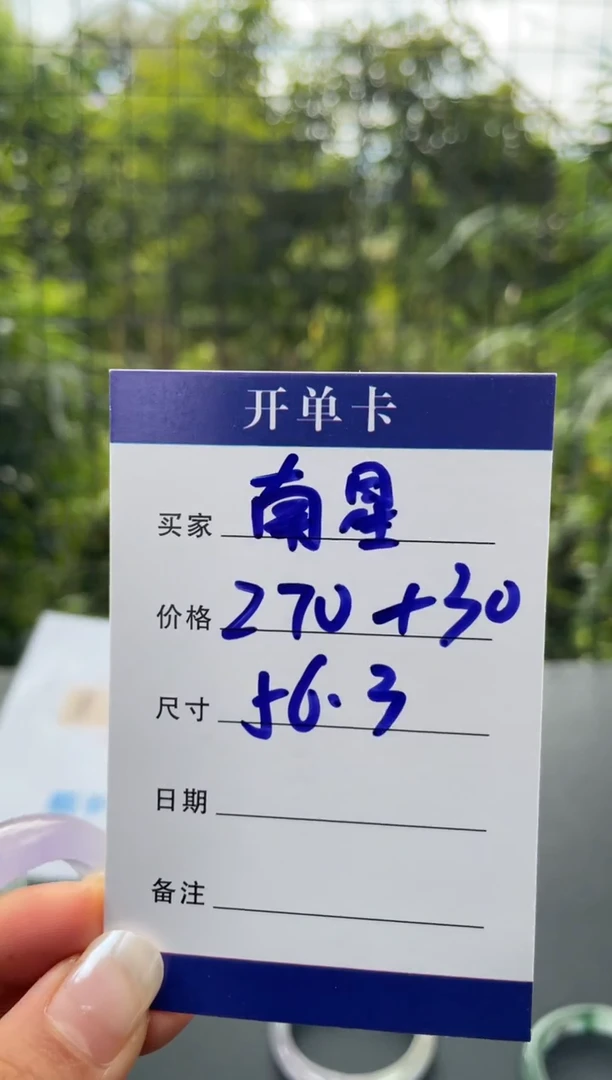 开单卡
买家 南星
价格 270+30
尺寸 56.3
日期
备注